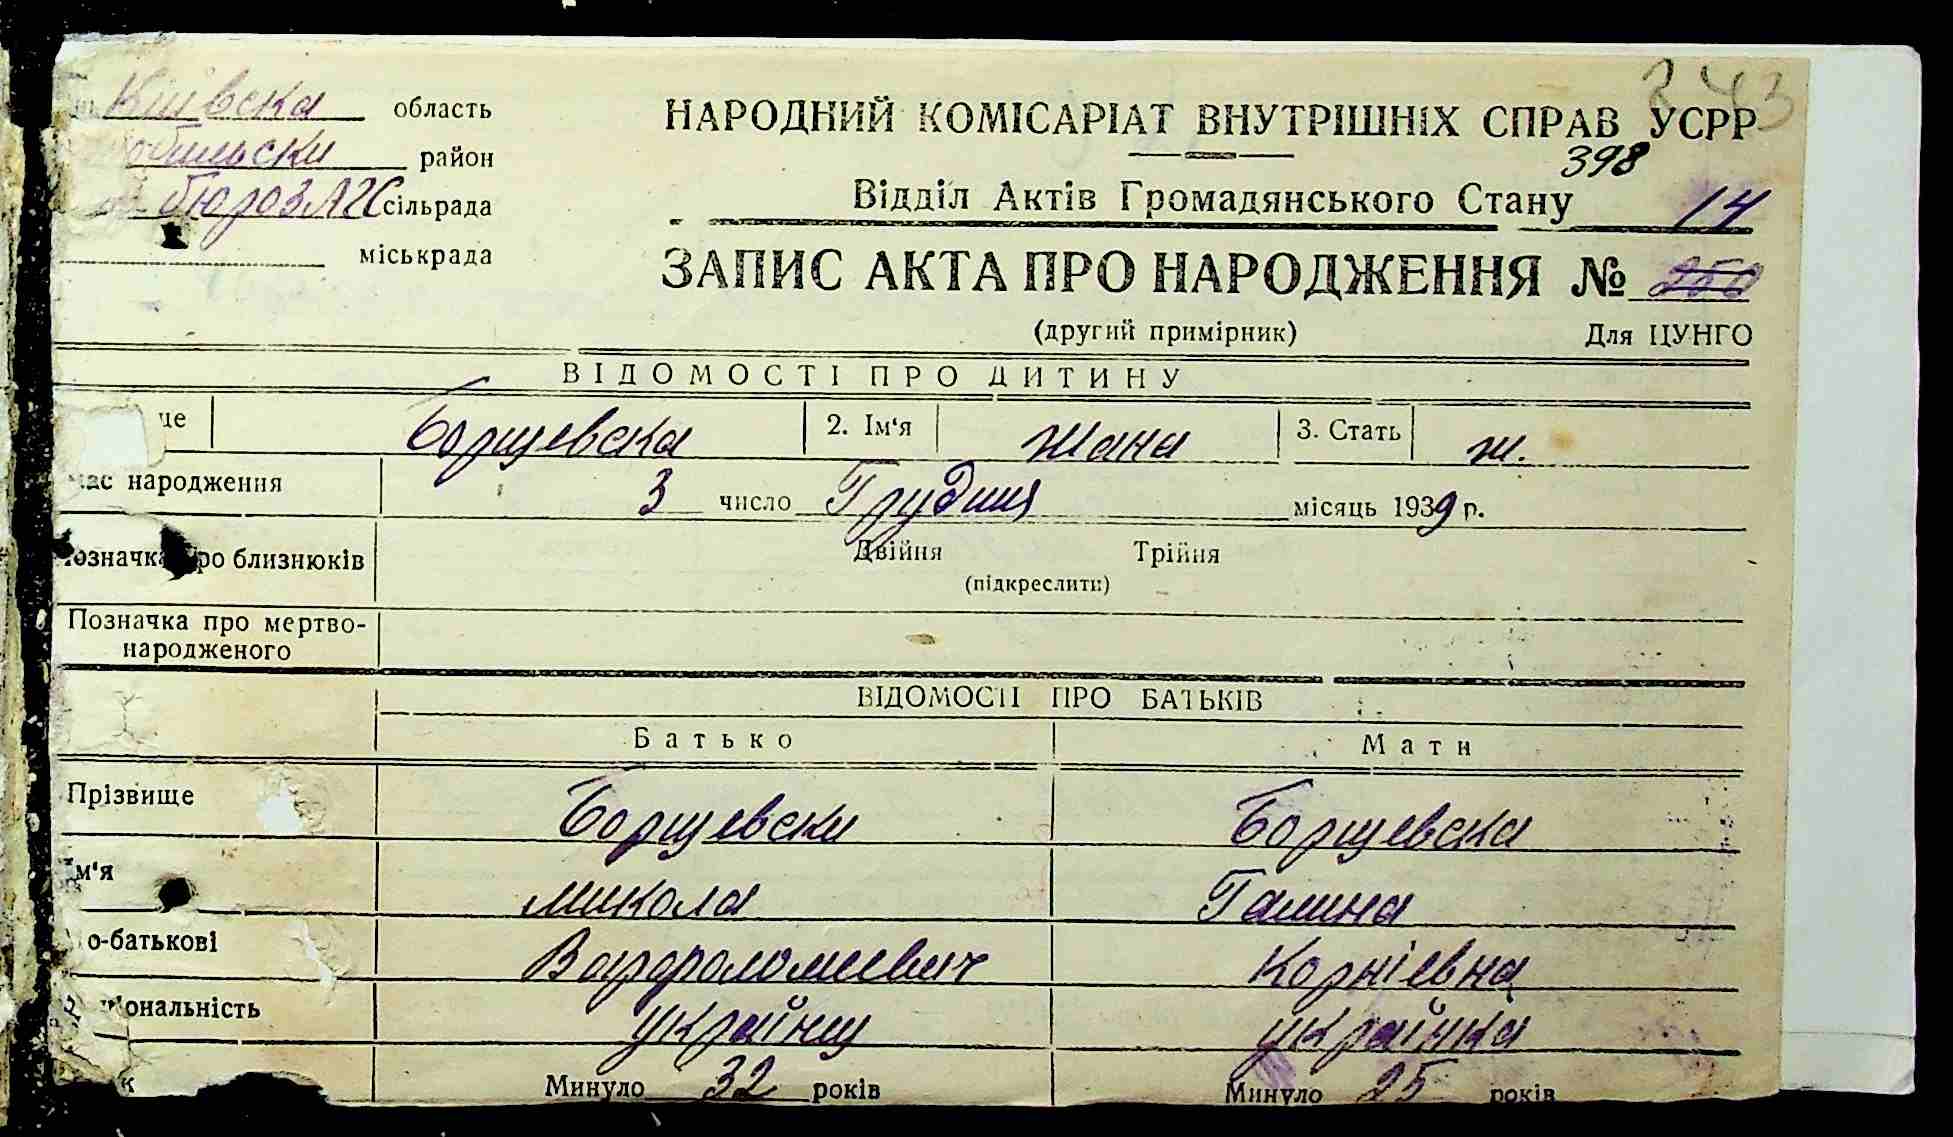 Київска область
район
бюро ЗАГС сільрада
міськрада
343
НАРОДНИЙ КОМІСАРІАТ ВНУТРІШНІХ СПРАВ УСРР
398
Відділ Актів Громадянського Стану 14
ЗАПИС АКТА ПРО НАРОДЖЕННЯ № 250
(другий примірник) Для ЦУНГО
ВІДОМОСТІ ПРО ДИТИНУ
ще Борщевска 2. Ім'я Жана 3. Стать ж.
час народження 3 число Грудня місяць 1939 р.
Позначка про близнюків Двійня Трійня
(підкреслити)
Позначка про мертво-
народженого
ВІДОМОСТІ ПРО БАТЬКІВ
Батько Мати
Прізвище Борщевски Борщевска
Ім'я Микола Галина
По-батькові Варфоломиевич Корніевна
Національність украінец украінка
к Минуло 32 років Минуло 25 років